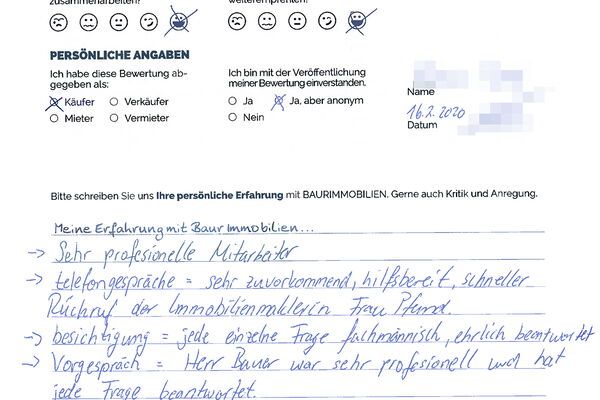 zusammenarbeiten?
weiterempfehlen?
PERSÖNLICHE ANGABEN
Ich habe diese Bewertung ab-
gegeben als:
Käufer
Verkäufer
Mieter
Vermieter
Ich bin mit der Veröffentlichung
meiner Bewertung einverstanden.
Ja
Ja, aber anonym
Nein
Name
16.2.2020
Datum
Bitte schreiben Sie uns Ihre persönliche Erfahrung mit BAURIMMOBILIEN. Gerne auch Kritik und Anregung.
Meine Erfahrung mit Baur Immobilien...
→ Sehr profesionelle Mitarbeiter
→ telefongespräche = sehr zuvorkommend, hilfsbereit, schneller
Rückruf der Immobilienmaklerin Frau Pfund.
→ besichtigung = jede einzelne Frage fachmännisch, ehrlich beantwortet
→ Vorgespräch = Herr Bauer war sehr profesionell und hat
jede Frage beantwortet.